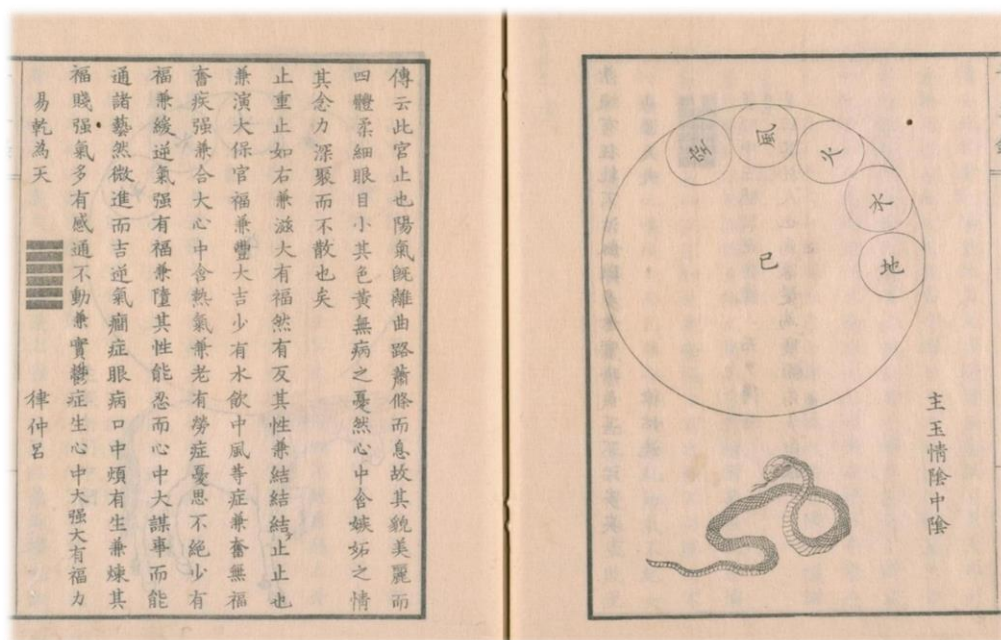 地
水
火
風
空
巳
主玉情陰中陰
傳云此宮止也陽氣既離曲路蕭條而息故其貌美麗而
四體柔細眼目小其色黃無病之憂然心中含嫉妬之情
其念力深聚而不散也矣
止重止如右兼滋大有福然有反其性兼結結結止止也
兼演大保官福兼豐大吉少有水飲中風等症兼奮無福
奮疾强兼合大心中含熱氣兼老有勞症憂思不絕少有
福兼緩逆氣强有福兼其性能忍而心中大謀事而能
通諸藝然微進而吉逆氣癇症眼病口中煩有生兼煉其
福賤强氣多有感通不動兼實鬱症生心中大强大有福力
易乾為天 律仲呂